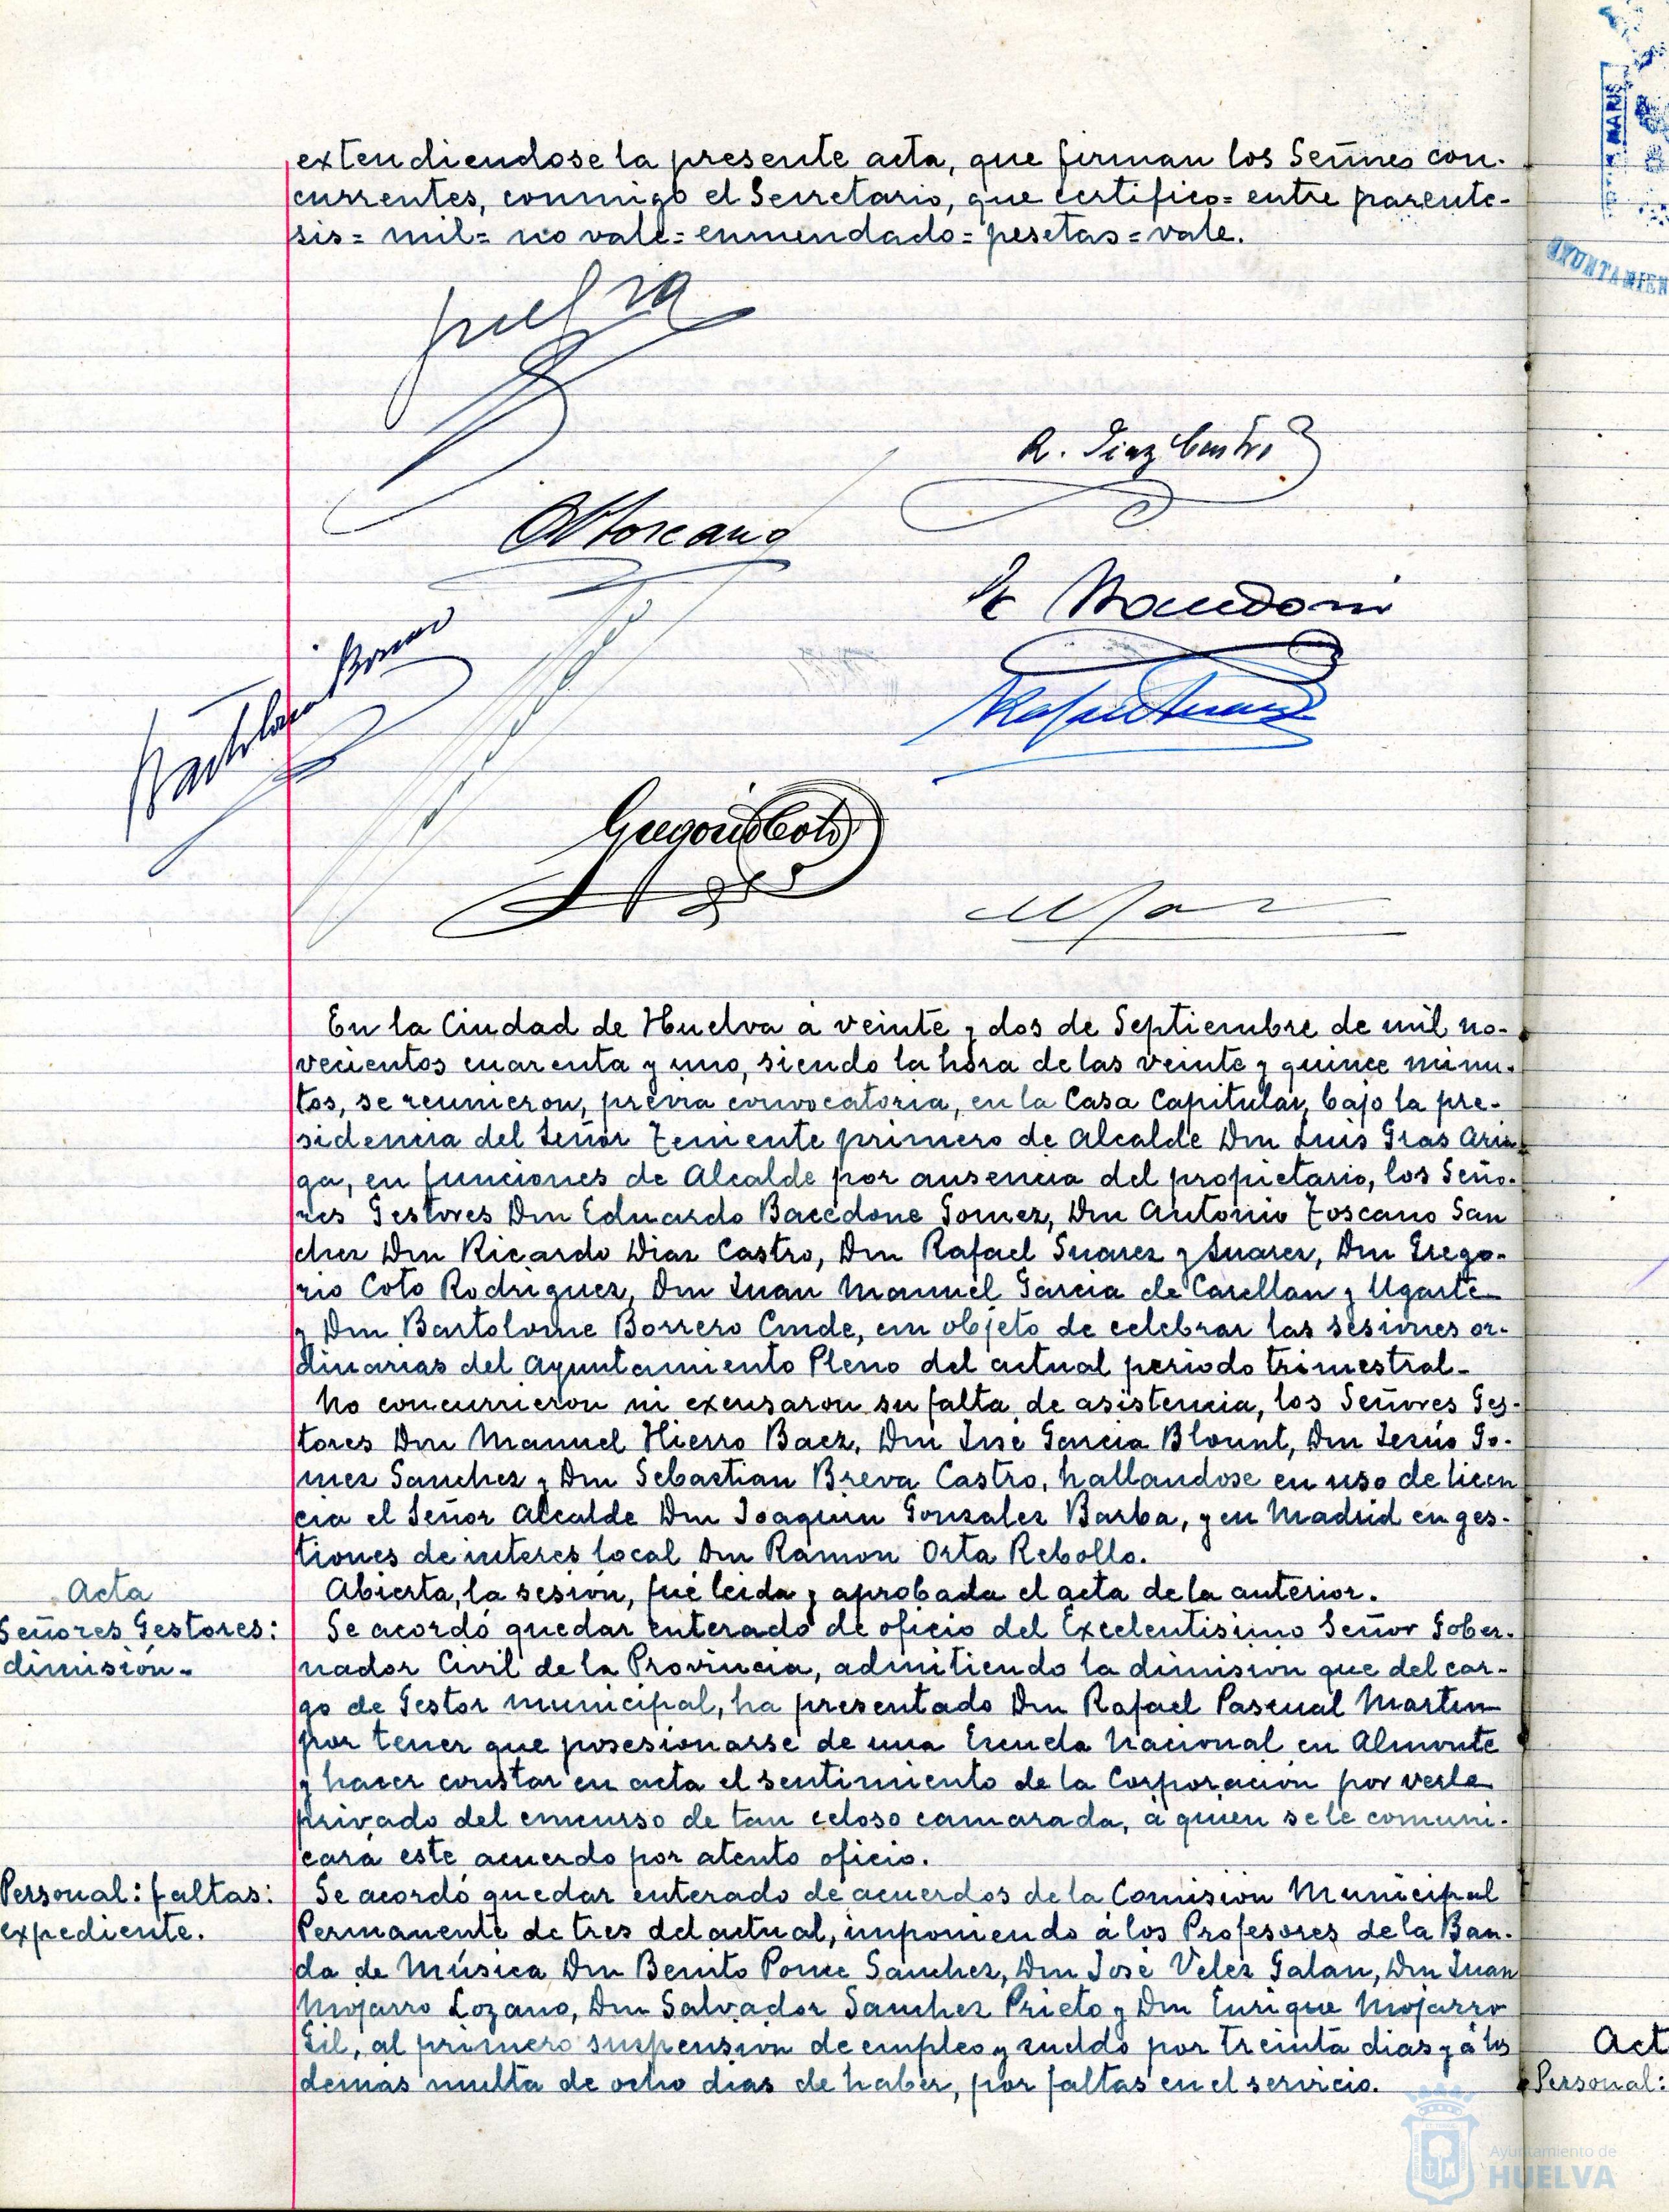 extendiendose la presente acta, que firman los Señores con-
currentes, conmigo el Secretario, que certifico= entre parente-
sis= mil= no vale= enmendado= pesetas= vale.
R. Diaz Castro
A Toscano
Bartolomé Borrero
Rafael Suarez
Gregorio Coto
En la Ciudad de Huelva a veinte y dos de Septiembre de mil no-
vecientos cuarenta y uno, siendo la hora de las veinte y quince minu-
tos, se reunieron, previa convocatoria, en la Casa Capitular, bajo la pre-
sidencia del Señor Teniente primero de Alcalde Don Luis Gras Arin-
ga, en funciones de Alcalde por ausencia del propietario, los Seño-
res Gestores Don Eduardo Bacedone Gomez, Don Antonio Toscano San
chez Don Ricardo Diaz Castro, Don Rafael Suarez y Suarez, Don Grego-
rio Coto Rodriguez, Don Juan Manuel Garcia de Casellan y Ugarte
y Don Bartolome Borrero Conde, con objeto de celebrar las sesiones or-
dinarias del Ayuntamiento Pleno del actual periodo trimestral-
No concurrieron ni excusaron su falta de asistencia, los Señores Ges-
tores Don Manuel Hierro Baez, Don Jose Garcia Blount, Don Jesús Go-
mez Sanchez y Don Sebastian Breva Castro, hallandose en uso de licen
cia el Señor Alcalde Don Joaquin Gonzalez Barba, y en Madrid en ges-
tiones de interes local Don Ramon Orta Rebollo.
Acta
Abierta, la sesión, fué leida y aprobada el acta de la anterior.
Señores Gestores:
dimisión-
Se acordó quedar enterado de oficio del Excelentisimo Señor Gober-
nador Civil de la Provincia, admitiendo la dimision que del car-
go de Gestor municipal, ha presentado Don Rafael Pascual Martin
por tener que posesionarse de una Escuela Nacional en Almonte
y hacer constar en acta el sentimiento de la Corporación por verse
privado del concurso de tan celoso camarada, a quien se le comuni-
cará este acuerdo por atento oficio.
Personal: faltas:
expediente.
Se acordó quedar enterado de acuerdos de la Comisión Municipal
Permanente de tres del actual, imponiendo á los Profesores de la Ban-
da de Música Don Benito Ponce Sanchez, Don José Velez Galan, Don Juan
Mojarro Lozano, Don Salvador Sanchez Prieto y Don Enrique Mojarro
Gil, al primero suspension de empleo y sueldo por treinta dias y á los
demás multa de ocho dias de haber, por faltas en el servicio.
MARIS
AYUNTAMIEN
Act
Personal:
Ayuntamiento de
HUELVA